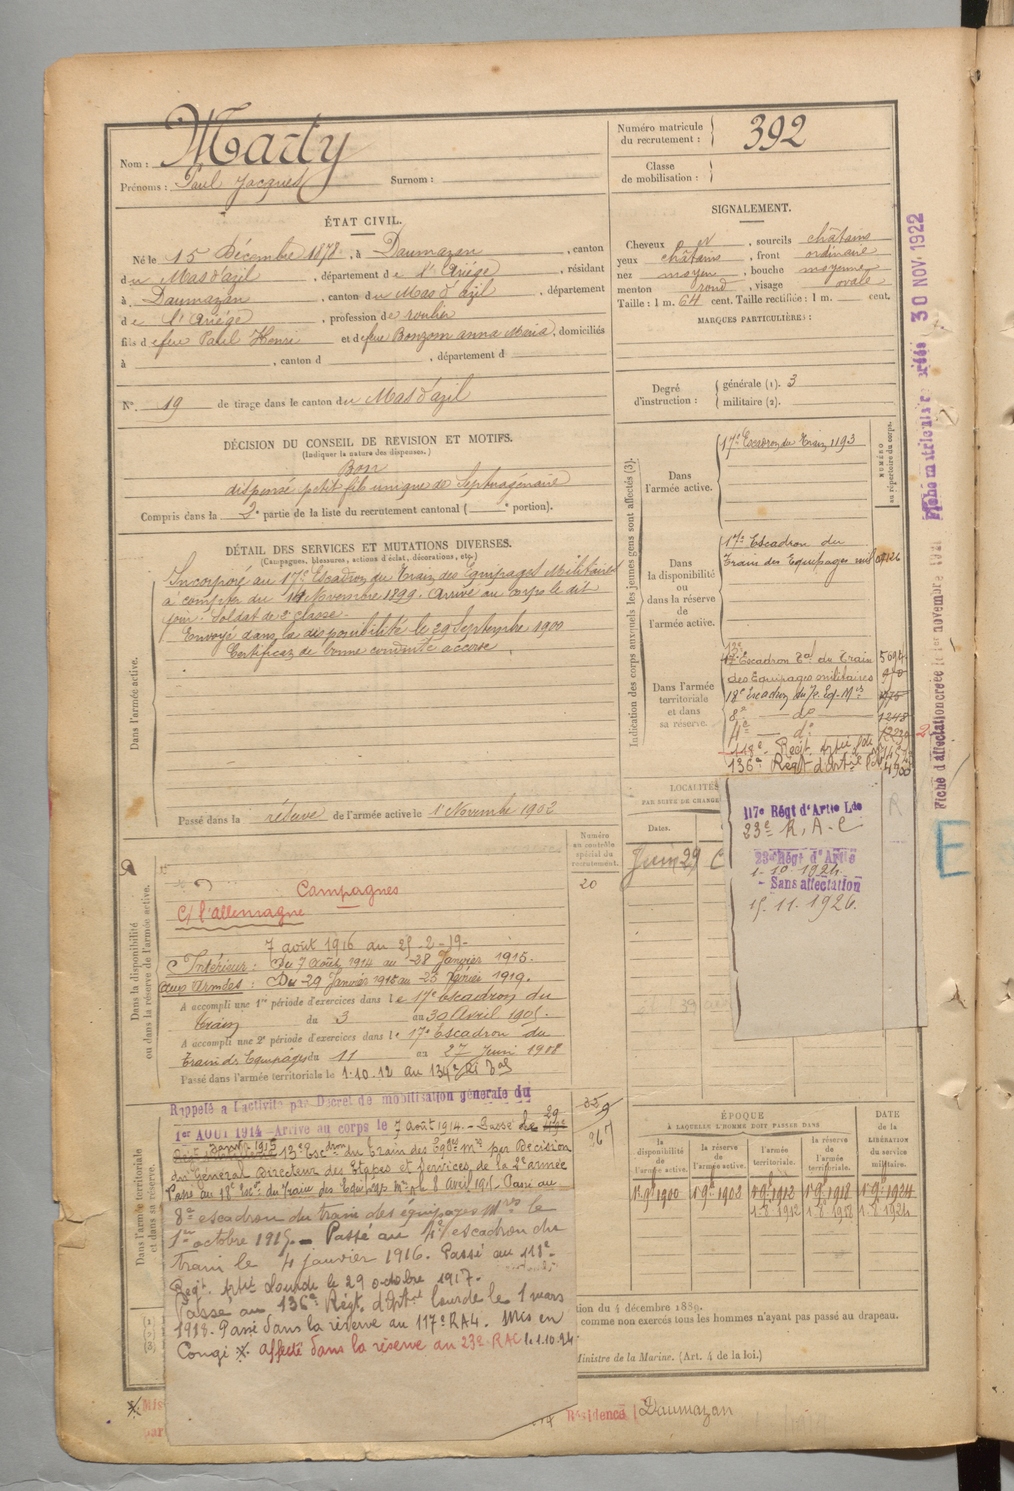 Nom : Marty
Prénoms : Paul Jacques Surnom :
Numéro matricule du recrutement : 392
Classe de mobilisation :
ÉTAT CIVIL.
Né le 15 Décembre 1878, à Daumazan, canton
du Mas d'azil, département de l'Ariège, résidant
à Daumazan, canton du Mas d'azil, département
de l'Ariège, profession de roulier
fils de feu Paul Henri et de feue Bonzom anna Maria, domiciliés
à , canton d , département d
N° 19 de tirage dans le canton du Mas d'azil
SIGNALEMENT.
Cheveux , sourcils châtains
yeux châtains, front ordinaire
nez moyen, bouche moyenne
menton rond, visage ovale
Taille : 1 m. 64 cent. Taille rectifiée : 1 m. cent.
MARQUES PARTICULIÈRES :
Degré d'instruction : générale (1). 3
militaire (2).
DÉCISION DU CONSEIL DE REVISION ET MOTIFS.
(Indiquer la nature des dispenses.)
Bon
dispensé petit fils unique de Septuagénaire
Compris dans la 2e partie de la liste du recrutement cantonal ( e portion).
DÉTAIL DES SERVICES ET MUTATIONS DIVERSES.
(Campagnes, blessures, actions d'éclat, décorations, etc.)
Dans l'armée active.
Incorporé au 17e Escadron du Train des Equipages Militaires
à compter du Novembre 1899. Arrivé au corps le dit
jour. Soldat de 2e classe.
Envoyé dans la disponibilité le 29 Septembre 1900
Certificat de bonne conduite accordé.
Passé dans la réserve de l'armée active le 1er Novembre 1902
Indication des corps auxquels les jeunes gens sont affectés (3).
NUMÉRO au répertoire du corps.
Dans l'armée active.
17e Escadron du Train 1193
Dans la disponibilité ou dans la réserve de l'armée active.
17e Escadron du
Train des Equipages mil
Dans l'armée territoriale et dans sa réserve.
Escadron Tal du Train
des Equipages militaires
18e Escadron du Tr. Eq. Mres
8e — do 1248
4e — do
118e Régt Artie
136e Régt d'Art 4900
117e Régt d'Artie Lde
23e R. A. C
23e Régt d'Artie
1-10-1924
Sans affectation
15.11.1926.
LOCALITÉS
PAR SUITE DE CHANGE
Dates.
Juin 29
Numéro au contrôle spécial du recrutement.
20
Dans la disponibilité ou dans la réserve de l'armée active.
Campagnes
C/ l'allemagne
7 août 1916 au 25-2-19-
Intérieur : Du 7 Août 1914 au 28 Janvier 1915.
aux Armées : Du 29 Janvier 1915 au 25 février 1919.
A accompli une 1re période d'exercices dans le 17e Escadron du
Train du 3 au 30 Avril 1905.
A accompli une 2e période d'exercices dans le 17e Escadron du
Train des Equipages du 11 au 27 Juin 1908
Passé dans l'armée territoriale le 1.10.12
Dans l'armée territoriale et dans sa réserve.
Rappelé à l'activité par Décret de mobilisation générale du
1er AOUT 1914 - Arrivé au corps le 7 août 1914. - Passé le 29
janvier 1915 13e Escdron du Train des Eqges mres par Décision
du Général Directeur des Etapes et Services, de la 2e armée
Passé au 18e Escon du Train des Equipages mres le 8 Avril 1915. Passé au
8e escadron du train des équipages Mres le
1er octobre 1915. - Passé au 4e escadron du
train le 4 janvier 1916. Passé au 118e
Régt. Artie Lourde le 29 octobre 1917.
Passé au 136e Régt d'Art lourde le 1 mars
1918. Passé dans la réserve au 117e RA4. Mis en
Congé X. affecté dans la réserve au 23e RAC le 1.10.24
ÉPOQUE
À LAQUELLE L'HOMME DOIT PASSER DANS
la disponibilité de l'armée active.
la réserve de l'armée active.
l'armée territoriale.
la réserve de l'armée territoriale.
DATE de la LIBÉRATION du service militaire.
1er 9bre 1900 1er 9bre 1908 1er 9bre 1912 1er 9bre 1918 1er 9bre 1924
1-8-1912 1-8-1918 1-8-1924
tion du 4 décembre 1889.
comme non exercés tous les hommes n'ayant pas passé au drapeau.
Ministre de la Marine. (Art. 4 de la loi.)
Résidence Daumazan
30 NOV. 1922
Fiche d'affectation créée le 1er novembre
E